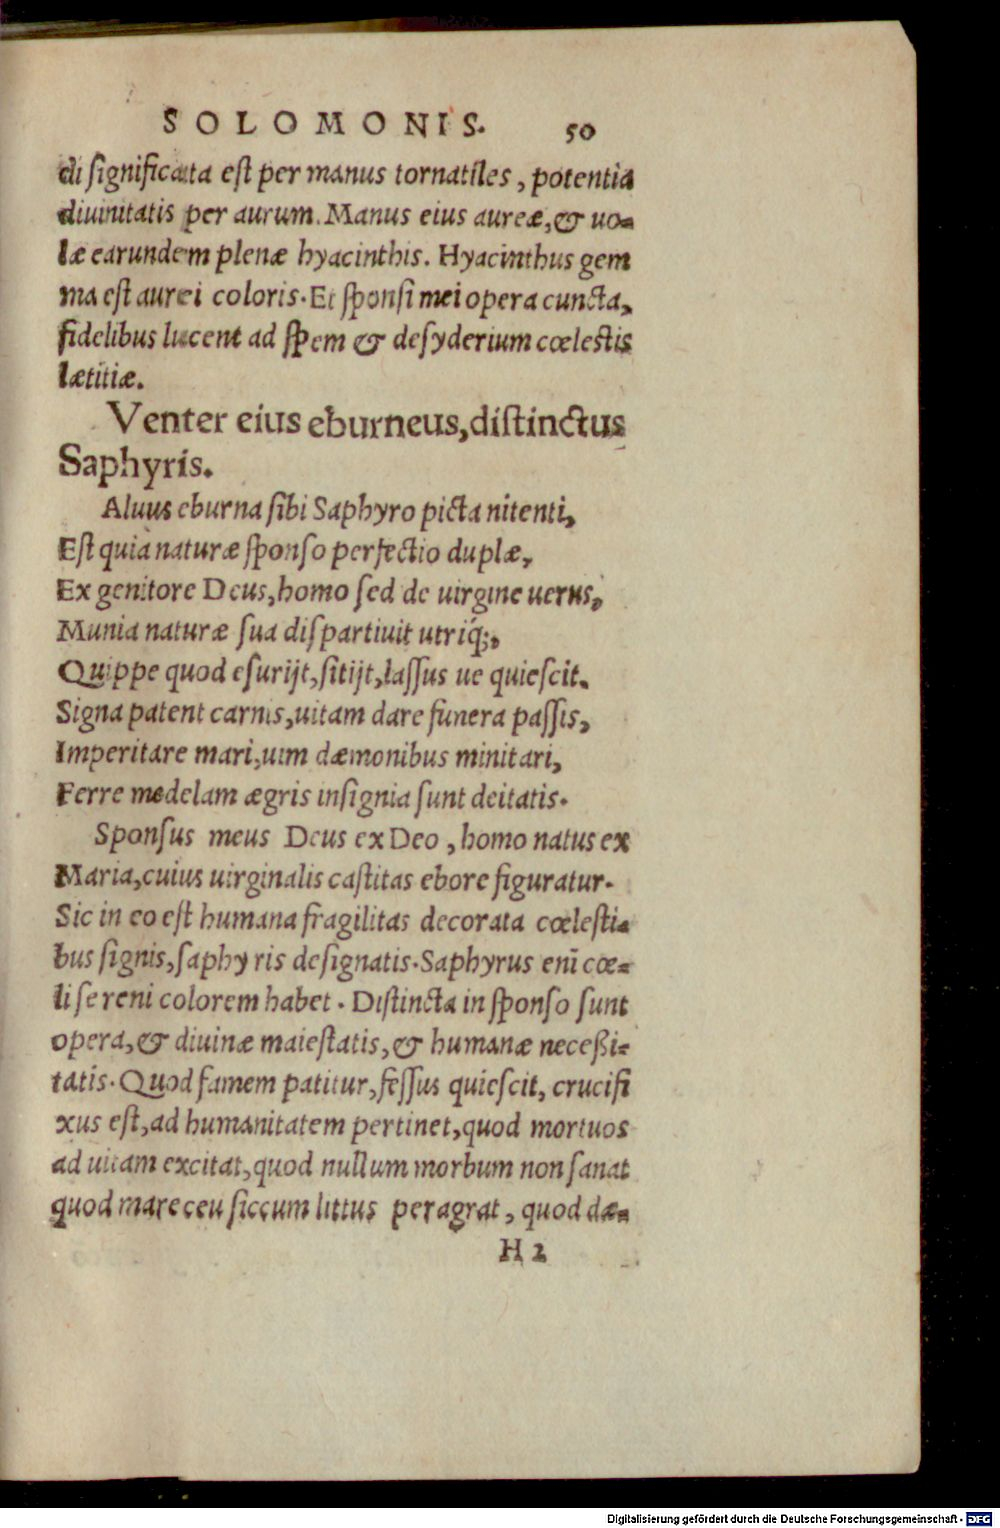 SOLOMONIS. 50
di significata est per manus tornatiles, potentia
diuinitatis per aurum. Manus eius aureæ, & uo-
læ earundem plenæ hyacinthis. Hyacinthus gem
ma est aurei coloris. Et sponsi mei opera cuncta,
fidelibus lucent ad spem & desyderium cœlestis
lætitiæ.
Venter eius eburneus, distinctus
Saphyris.
Aluus eburna sibi Saphyro picta nitenti,
Est quia naturæ sponso perfectio duplæ,
Ex genitore Deus, homo sed de uirgine uerus,
Munia naturæ sua dispartiuit utriq;,
Quippe quod esurijt, sitijt, lassus ue quiescit.
Signa patent carnis, uitam dare funera passis,
Imperitare mari, uim dæmonibus minitari,
Ferre medelam ægris insignia sunt deitatis.
Sponsus meus Deus ex Deo, homo natus ex
Maria, cuius uirginalis castitas ebore figuratur.
Sic in eo est humana fragilitas decorata cœlesti-
bus signis, saphyris designatis. Saphyrus enī cœ-
li sereni colorem habet. Distincta in sponso sunt
opera, & diuinæ maiestatis, & humanæ neceßi-
tatis. Quod famem patitur, fessus quiescit, crucifi
xus est, ad humanitatem pertinet, quod mortuos
ad uitam excitat, quod nullum morbum non sanat
quod mare ceu siccum littus peragrat, quod dæ-
H 2
Digitalisierung gefördert durch die Deutsche Forschungsgemeinschaft - DFG